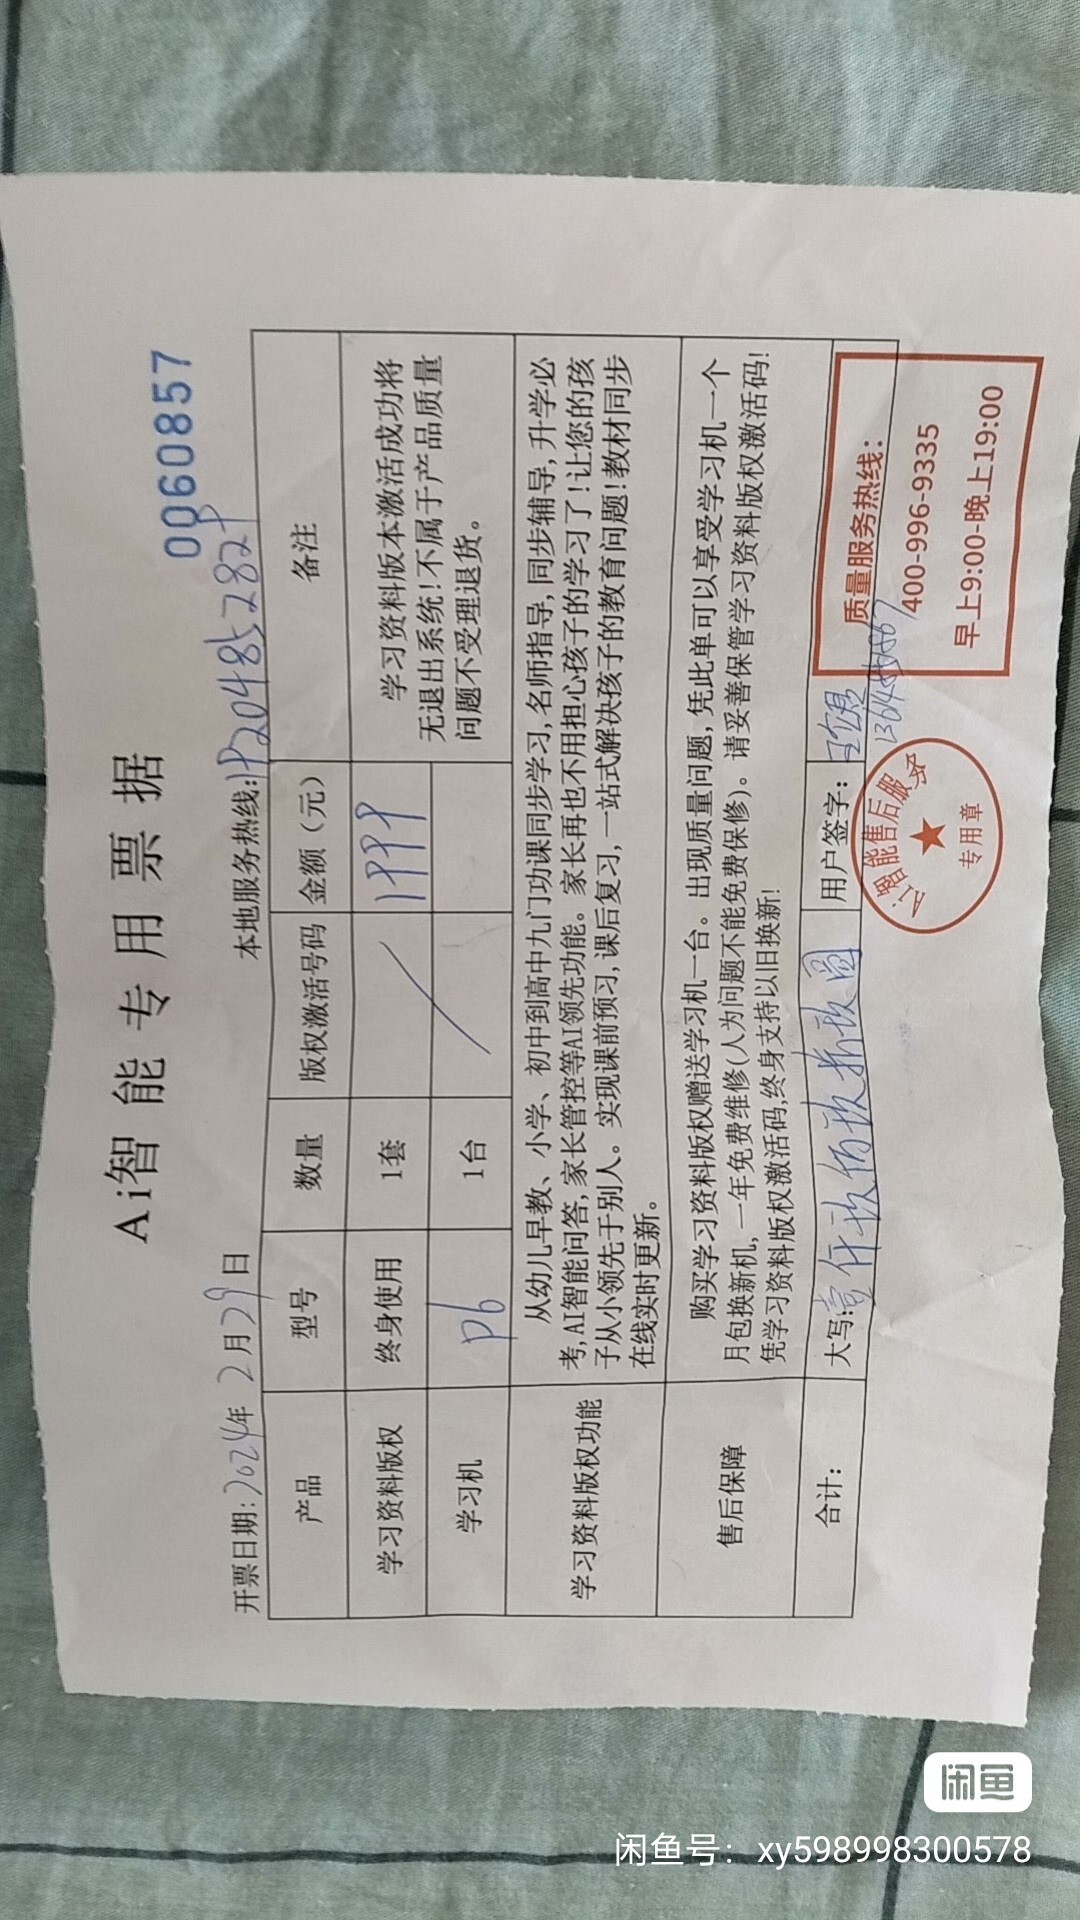 Ai智能专用票据
0060857
开票日期:2024年2月29日 本地服务热线:19204852829
产品 型号 数量 版权激活号码 金额（元） 备注
学习资料版权 终身使用 1套 1999
学习机 P6 1台
学习资料版本激活成功将
无退出系统!不属于产品质量
问题不受理退货。
学习资料版权功能
从幼儿早教、小学、初中到高中九门功课同步学习,名师指导,同步辅导,升学必
考,AI智能问答,家长管控等AI领先功能。家长再也不用担心孩子的学习了!让您的孩
子从小领先于别人。实现课前预习,课后复习,一站式解决孩子的教育问题!教材同步
在线实时更新。
售后保障
购买学习资料版权赠送学习机一台。出现质量问题,凭此单可以享受学习机一个
月包换新机,一年免费维修(人为问题不能免费保修)。请妥善保管学习资料版权激活码!
凭学习资料版权激活码,终身支持以旧换新!
合计: 大写:壹仟玖佰玖拾玖圆 用户签字:
Ai智能售后服务
专用章
质量服务热线:
400-996-9335
早上9:00-晚上19:00
闲鱼
闲鱼号：xy598998300578